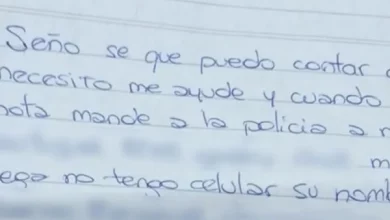 Seño se que puedo contar
necesito me ayude y cuando
nota mande a la policia a
ega no tengo celular su nomb